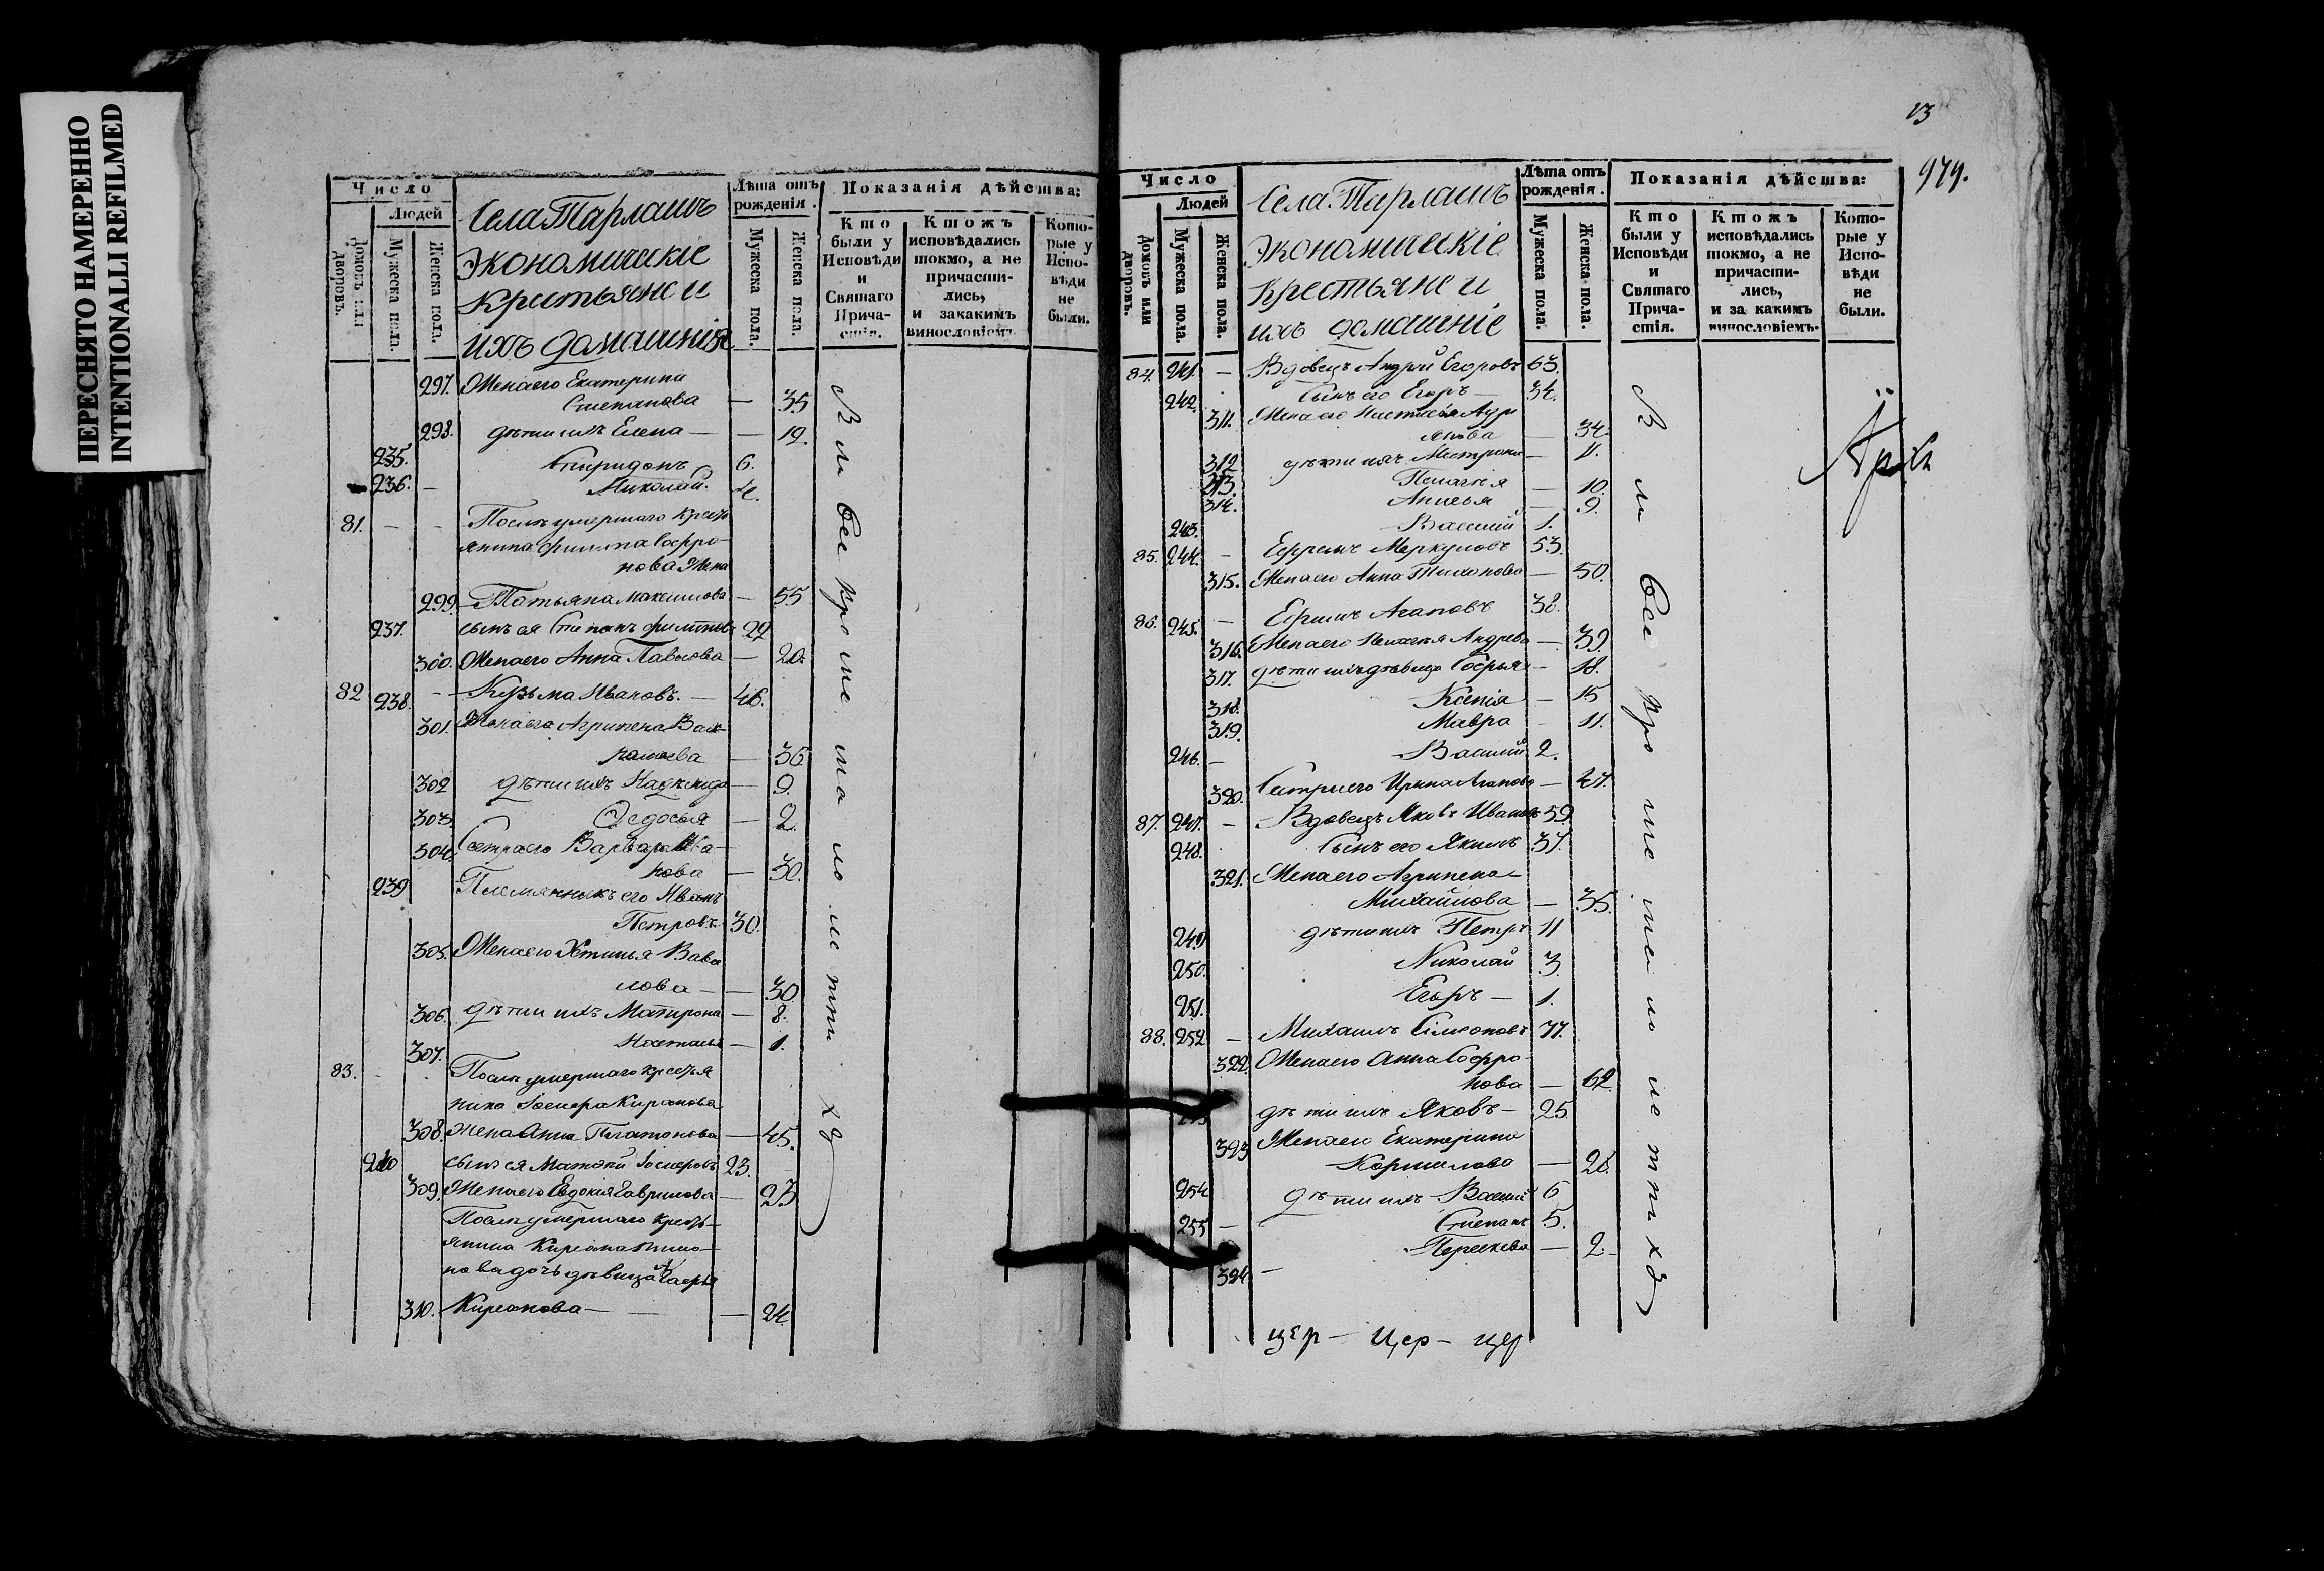 ПЕРЕСНЯТО НАМЕРЕННО
INTENTIONALLI REFILMED
Число
Людей
Домовъ или дворовъ.
Мужеска пола.
Женска пола.
Села Тарлашъ
Экономическіе
Крестьяне и
ихъ домашнія
Лѣта отъ рожденія.
Мужеска пола.
Женска пола.
Показанія дѣйства:
Кто были у Исповѣди и Святаго Причастія.
Ктожъ исповѣдались токмо, а не причастились, и закакимъ винословіемъ
Которые у Исповѣди не были.
297. Жена его Екатерина
Степанова — 35
298. дѣти ихъ Елена — — 12.
235. Спиридонъ 6.
236. — Николай. 4.
81. — — Послѣ умершаго кресть
янина Филипа Софро-
нова Жена
299. Татьяна Максимова — 55
237. сынъ ея Степанъ Филиповъ 22
300. Жена его Анна Павлова — 20.
82 238. — Кузьма Ивановъ. — 46.
301. Жена его Агрипена
— 36
302 дѣти ихъ Надежида — 9.
303. Федосья — 2.
304. Сестра его Варвара Ива-
нова — 30.
239 Племянникъ его Иванъ
Петровъ 30.
305. Жена его Устинья Вави
лова — — 30.
306. дѣти ихъ Матрона — 8.
307. Настасья — 1.
83. Послѣ умершаго крестья
нина Кирсанова
308. Жена Анна Платонова — 45.
240 сынъ ея Матвѣй 23.
309. Жена его Евдокия Гаврилова — 23
Послѣ умершаго кресть-
янина Кирсана
нова дочь дѣвица
310. Кирсанова — — — 24.
Вси все кро ме ма ло ле тнихъ
13
979.
Число
Людей
Домовъ или дворовъ.
Мужеска пола.
Женска пола.
Села Тарлашъ
Экономическіе
Крестьяне и
ихъ домашніе
Лѣта отъ рожденія.
Мужеска пола.
Женска пола.
Показанія дѣйства:
Кто были у Исповѣди и Святаго Причастія.
Ктожъ исповѣдались токмо, а не причастились, и за какимъ винословіемъ.
Которые у Исповѣди не были.
84. 241. — Вдовецъ Андрей Егоровъ 63.
242. Сынъ его Егоръ — 34.
311. Жена его Настасія Лук
янова — 34.
312 дѣти ихъ Матрона — 11.
313. Пелагѣя — 10.
314. Анисья — 9.
243. Василий 1.
85. 244. — Ефремъ Меркуловъ 53.
315. Жена его Анна Тихонова — 50.
86. 245. — Ефимъ Агаповъ 38.
316. Жена его Андрева — 39.
317. дѣти ихъ дѣвица Софья — 18.
318. Ксенія — 15
319. Мавра — 11.
246. — Василий 2.
320. Сестра его Ирина Агапова — 47.
87. 247. — Вдовецъ Яковъ Ивановъ 59.
248. Сынъ его Якимъ 37.
321. Жена его Агрипена
Михайлова — 35.
249 дѣти ихъ Петръ 11
250. Николай 3.
251. Егоръ — 1.
88. 252 — Михаилъ Симеоновъ 77.
322. Жена его Анна Софро-
нова — 62.
253 дѣти ихъ Яковъ — 25
323 Жена его Екатерина
Корнилова — 28.
254 дѣти ихъ Василий 6
255 — Степанъ 5.
324 — Парасковя — 2.
Вси все кро ме ма ло ле тнихъ
цер— цер— цер